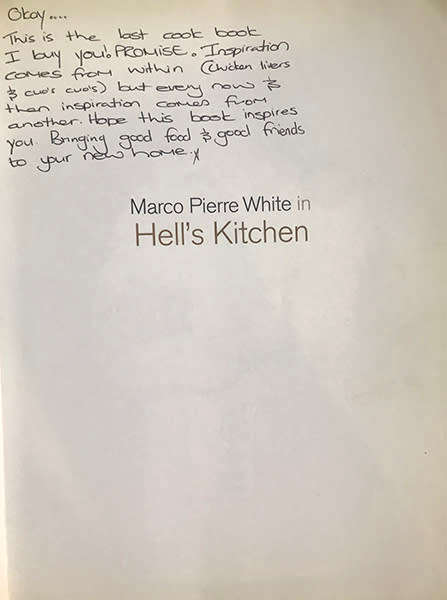 Okay....
This is the last cook book
I buy you! PROMISE. Inspiration
comes from within (chicken livers
& cuo's cuo's) but every now &
then inspiration comes from
another. Hope this book inspires
you. Bringing good food & good friends
to your new home. x
Marco Pierre White in
Hell's Kitchen